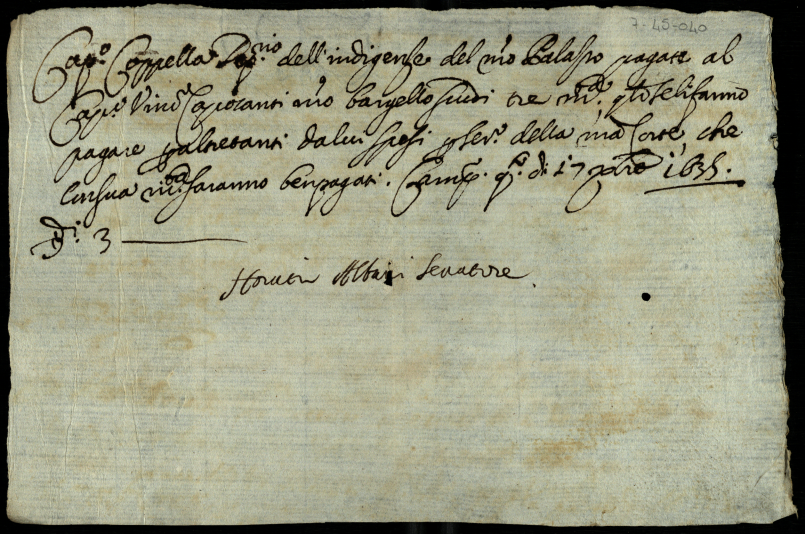 7-45-040
Cap.º Cappella Dep.rio dell'indigenze del nro Palasso pagate al
Cap.º Vinc.º Caporanti nro bargello scudi tre m.ta q.to seli fanno
pagare p altretanti da lui spesi p ser.º della nra Corte, che
con sua saranno ben pagati. Camp.º q.º dì 17 xbre 1635.
3
Horatio Albani Senatore.